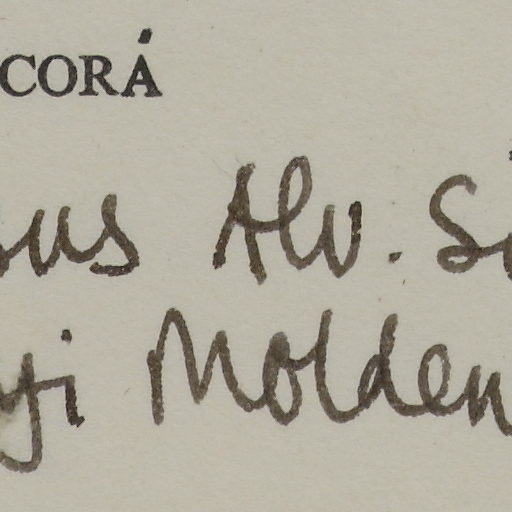 CORÁ
us Alv. Si
yi Molden